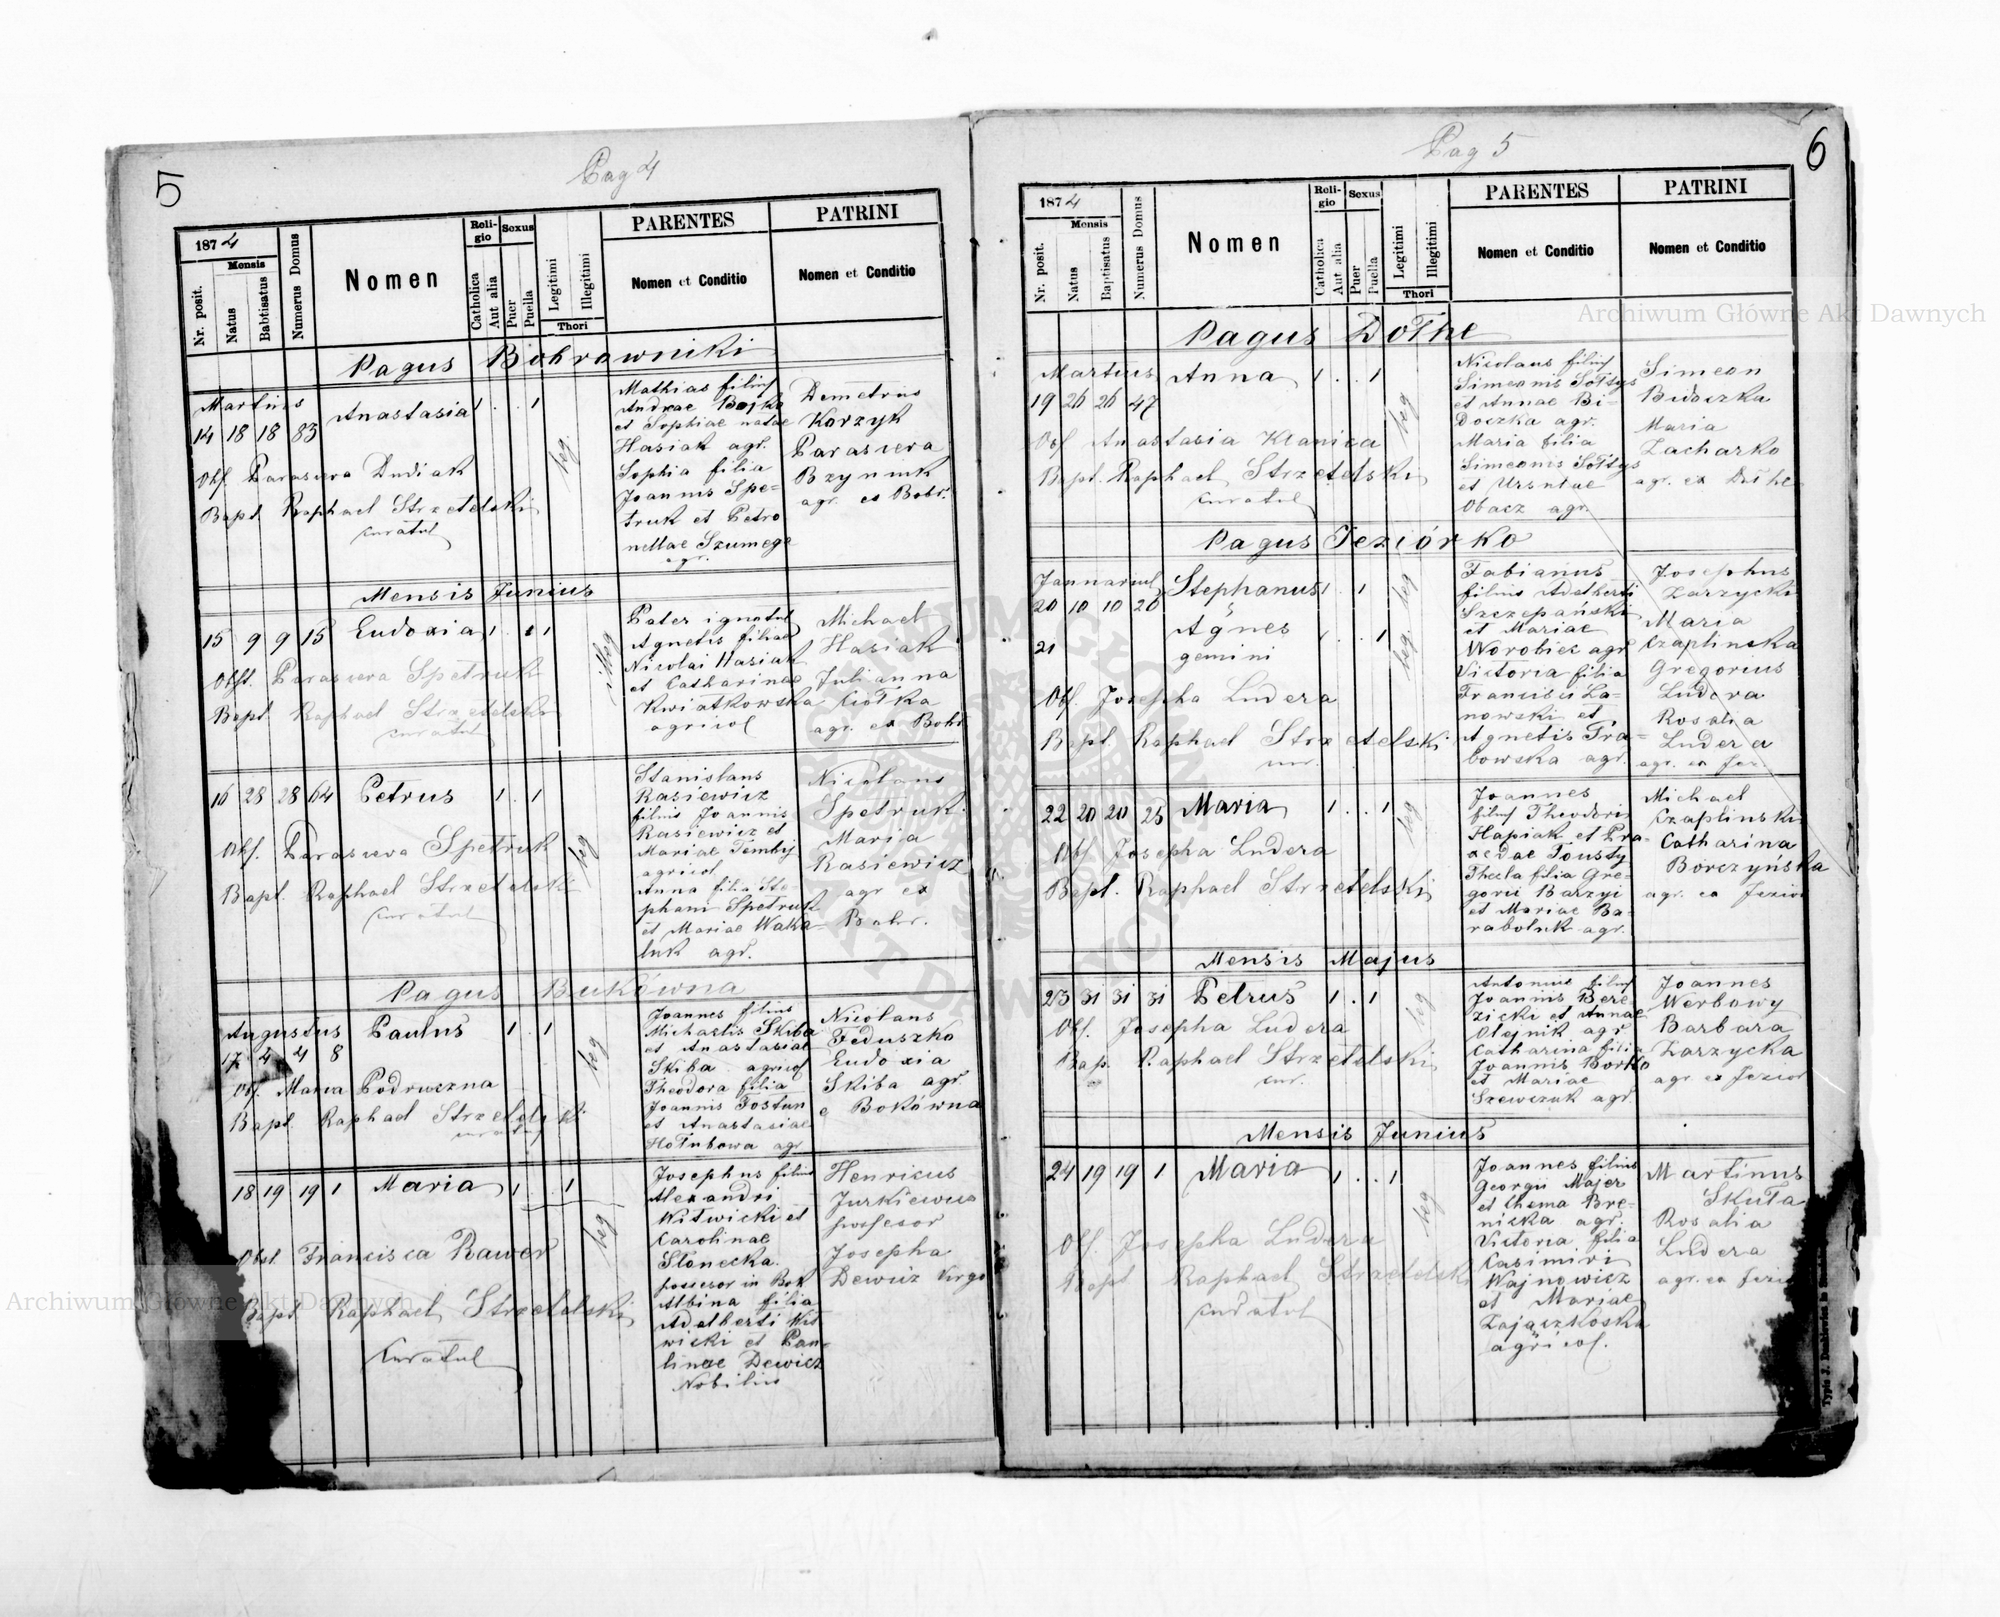 5
Pag 4
1874
Mensis
Nr. posit.
Natus
Babtisatus
Numerus Domus
Nomen
Religio
Catholica
Aut alia
Sexus
Puer
Puella
Legitimi
Illegitimi
Thori
PARENTES
Nomen et Conditio
PATRINI
Nomen et Conditio
Pagus Bobrowniki
Martius
14 18 18 83 Anastasia 1 . . 1 leg
Obs. Parasceva Dudiak
Bapt. Raphael Strzetelski
curatul
Mathias filius
Andreae Bojko
et Sophiae natae
Hasiak agr.
Sophia filia
Joannis Spe-
truk et Petro
nellae Szumega
agr.
Demetrius
Korzyk
Parasceva
Bzynuk
agr. ex Bobr.
Mensis Junius
15 9 9 15 Eudoxia 1 . . 1 illeg
Obst. Parasceva Spetruk
Bapt. Raphael Strzetelski
curatul
Pater ignotus
Agnetis filiae
Nicolai Hasiak
et Catharinae
Kwiatkowska
agricol
Michael
Hasiak
Julianna
Ciotka
agr. ex Bobr
16 28 28 64 Petrus 1 . 1 leg
Obs. Parasceva Spetruk
Bapt. Raphael Strzetelski
curatul
Stanislaus
Rasiewicz
filius Joannis
Rasiewicz et
Mariae Temby
agricol
Anna filia Ste
phani Spetruk
et Mariae Walka
luk agr.
Nicolaus
Spetruk
Maria
Rasiewicz
agr ex
Bobr.
Pagus Bukówna
Augustus Paulus 1 . 1 leg
17 4 4 8
Obs. Maria Podruczna
Bapt. Raphael Strzetelski
curatul
Joannes filius
Michaelis Skiba
et Anastasiae
Skiba agricol
Theodora filia
Joannis Fostun
et Anastasiae
Hołubowa agr
Nicolaus
Feduszko
Eudoxia
Skiba agr
e Bokówna
18 19 19 1 Maria 1 . . 1 leg
Obst. Francisca Rawer
Bapt. Raphael Strzetelski
Curatul
Josephus filius
Alexandri
Witwicki et
Carolinae
Słonecka
possesor in Buk
Albina filia
Adalberti Wit
wicki et Pau-
linae Dewicz
Nobilis
Henricus
Jurkiewicz
professor
Josepha
Dewicz Virgo
6
Pag 5
1874
Mensis
Nr. posit.
Natus
Baptisatus
Numerus Domus
Nomen
Religio
Catholica
Aut alia
Sexus
Puer
Puella
Legitimi
Illegitimi
Thori
PARENTES
Nomen et Conditio
PATRINI
Nomen et Conditio
Pagus Dołhe
Martius Anna 1 . . 1 leg
19 26 26 47
Obs Anastasia Klanica
Bapt. Raphael Strzetelski
curatul
Nicolaus filius
Simeonis Sołtys
et Annae Bi-
Doczka agr.
Maria filia
Simeonis Sołtys
et Ursulae
Obacz agr.
Simeon
Bidoczka
Maria
Zacharko
agr. ex Dołhe
Pagus Jeziórko
Januarius Stephanus 1 . 1 leg
20 10 10 26
21 Agnes 1 . . 1 leg.
gemini
Obs. Josepha Ludera
Bapt. Raphael Strzetelski
cur.
Fabianus
filius Adalberti
Szczepański
et Mariae
Worobiec agr
Victoria filia
Francisci La-
nowski et
Agnetis Gra-
bowska agr.
Josephus
Zarzycki
Maria
Czaplinska
Gregorius
Ludera
Rosalia
Ludera
agr. ex Jez.
22 20 20 25 Maria 1 . . 1 leg
Obs Josepha Ludera
Bapt. Raphael Strzetelski
Joannes
filius Theodori
Hapiak et Pra
xedae Tousty
Thecla filia Gre-
gorii Barzyi
et Mariae Ba-
raboluk agr.
Michael
Czaplinski
Catharina
Borczyńska
agr. ex Jezior
Mensis Majus
23 31 31 31 Petrus 1 . 1 leg
Obs. Josepha Ludera
Bap. Raphael Strzetelski
cur.
Antonius filius
Joannis Bere-
zicki et Annae
Olejnik agr
Catharina filia
Joannis Borko
et Mariae
Szewczuk agr.
Joannes
Werbowy
Barbara
Zarzycka
agr ex Jezior
Mensis Junius
24 19 19 1 Maria 1 . . 1 leg
Obs. Josepha Ludera
Bapt Raphael Strzetelski
curatul
Joannes filius
Georgii Majer
et Chema Bre-
nicka agr.
Victoria filia
Casimiri
Wajnowicz
et Mariae
Zajączkoska
agricol.
Martinus
Skuta
Rosalia
Ludera
agr. ex Jezior
Archiwum Główne Akt Dawnych
Archiwum Główne Akt Dawnych
ARCHIWUM GŁÓWNE AKT DAWNYCH